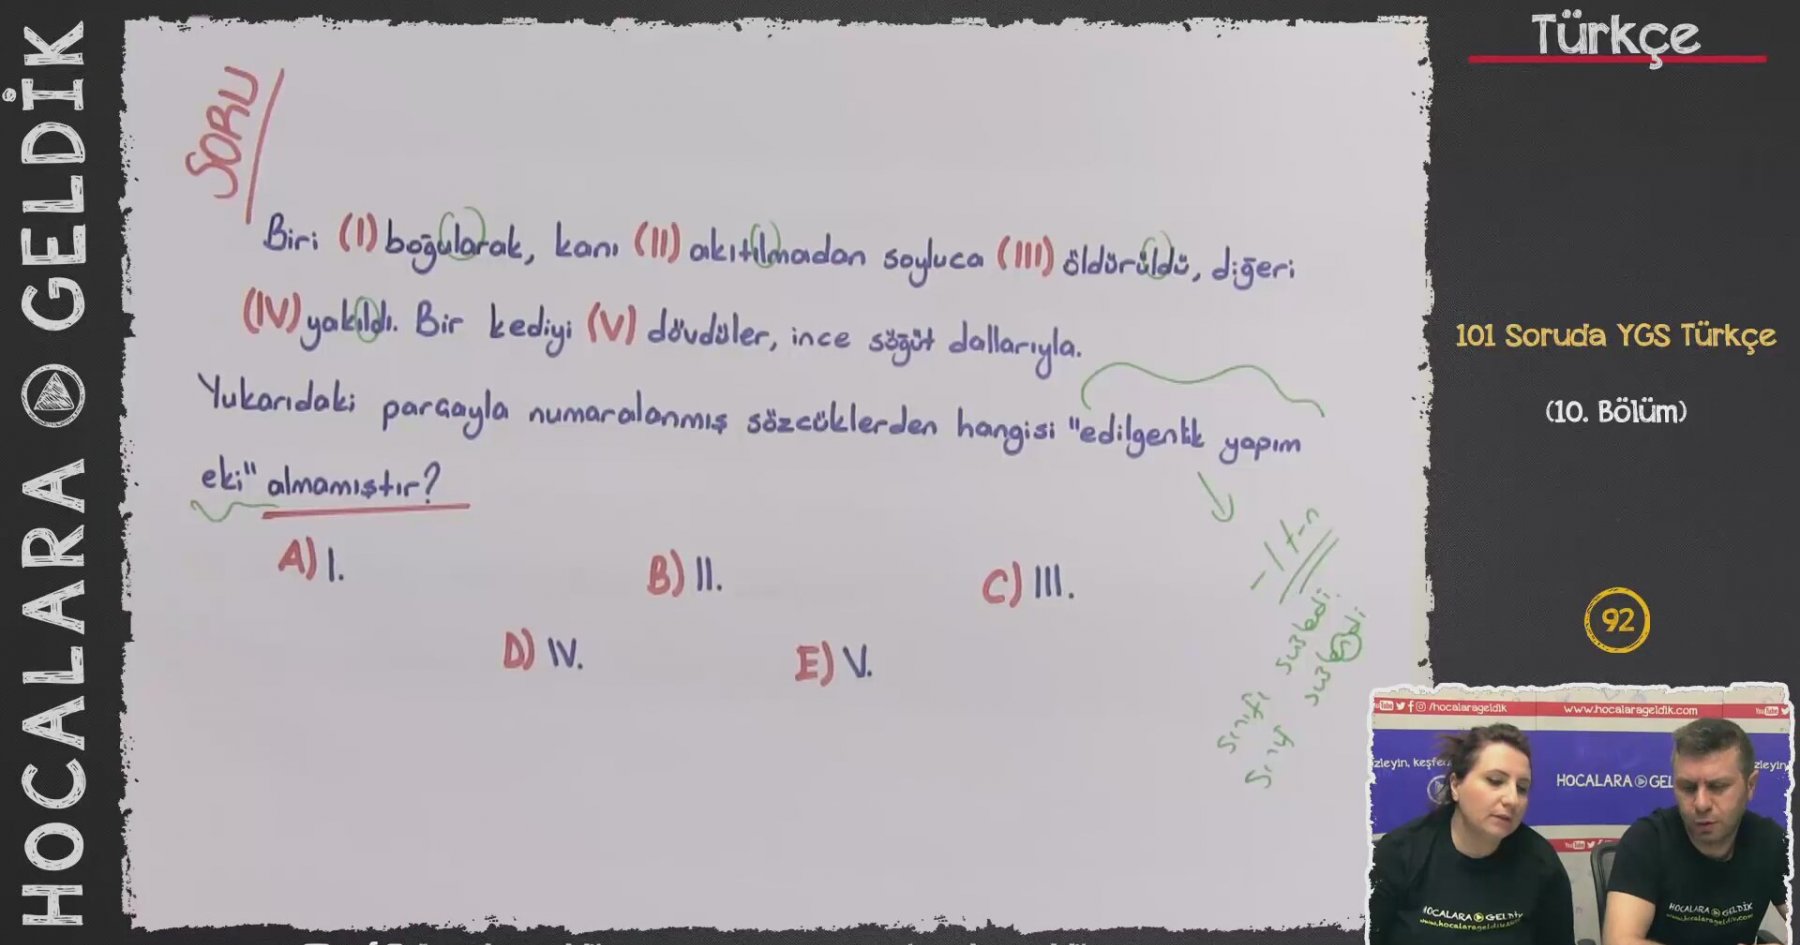 HOCALARA GELDİK
SORU
Biri (I) boğularak, kanı (II) akıtılmadan soyluca (III) öldürüldü, diğeri
(IV) yakıldı. Bir kediyi (V) dövdüler, ince söğüt dallarıyla.
Yukarıdaki parçayla numaralanmış sözcüklerden hangisi "edilgenlik yapım
eki" almamıştır?
A) I.
B) II.
C) III.
D) IV.
E) V.
-l + -n
süsledi
süslendi
Türkçe
101 Soruda YGS Türkçe
(10. Bölüm)
92
/hocalarageldik
www.hocalarageldik.com
HOCALARA GEL
HOCALARA GELDİK
www.hocalarageldik.com
HOCALARA GELDİK
www.hocalarageldik.com